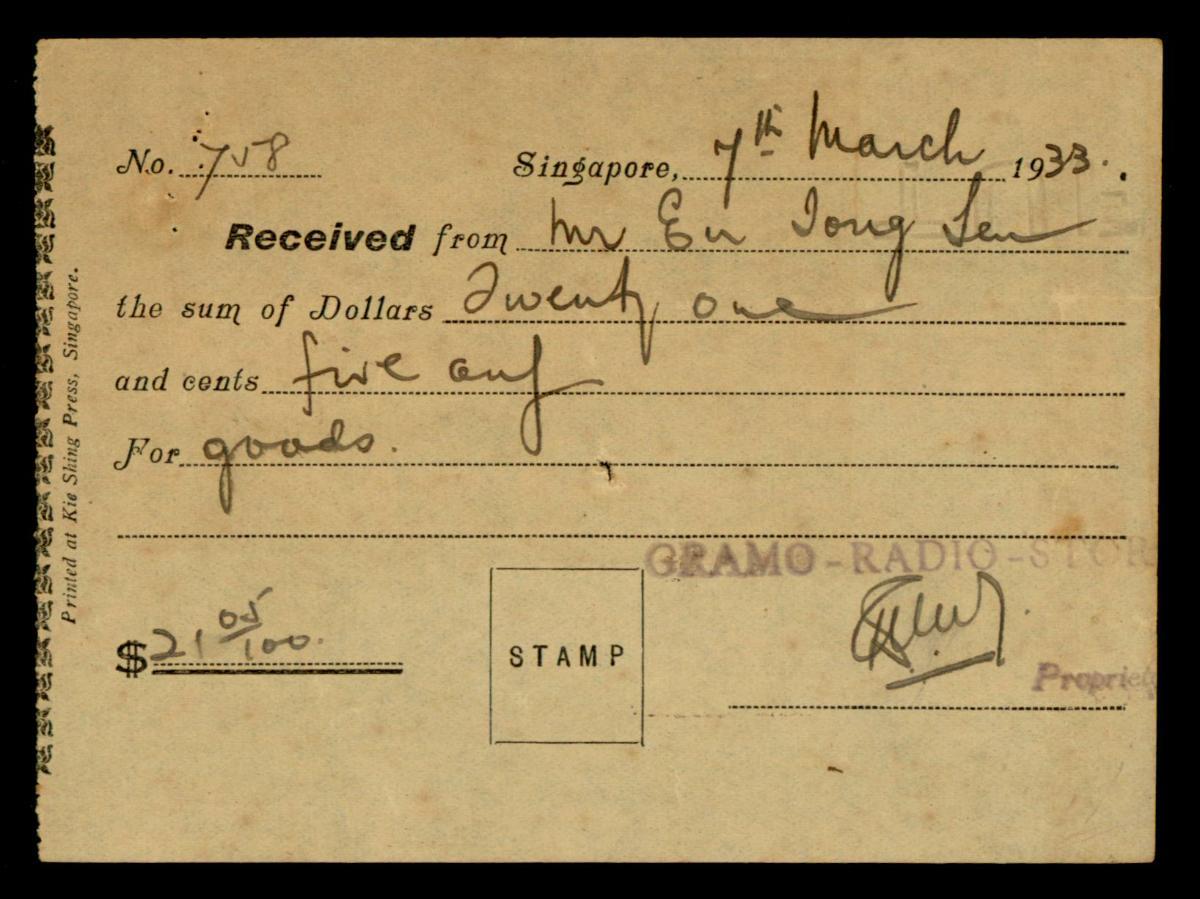 No. 758 Singapore, 7th March 1933.
Received from Mr Eu Tong Sen
the sum of Dollars Twenty one
and cents five only
For goods.
GRAMO-RADIO-STOR
$21 05/100.
STAMP
Propriet
Printed at Kie Shing Press, Singapore.